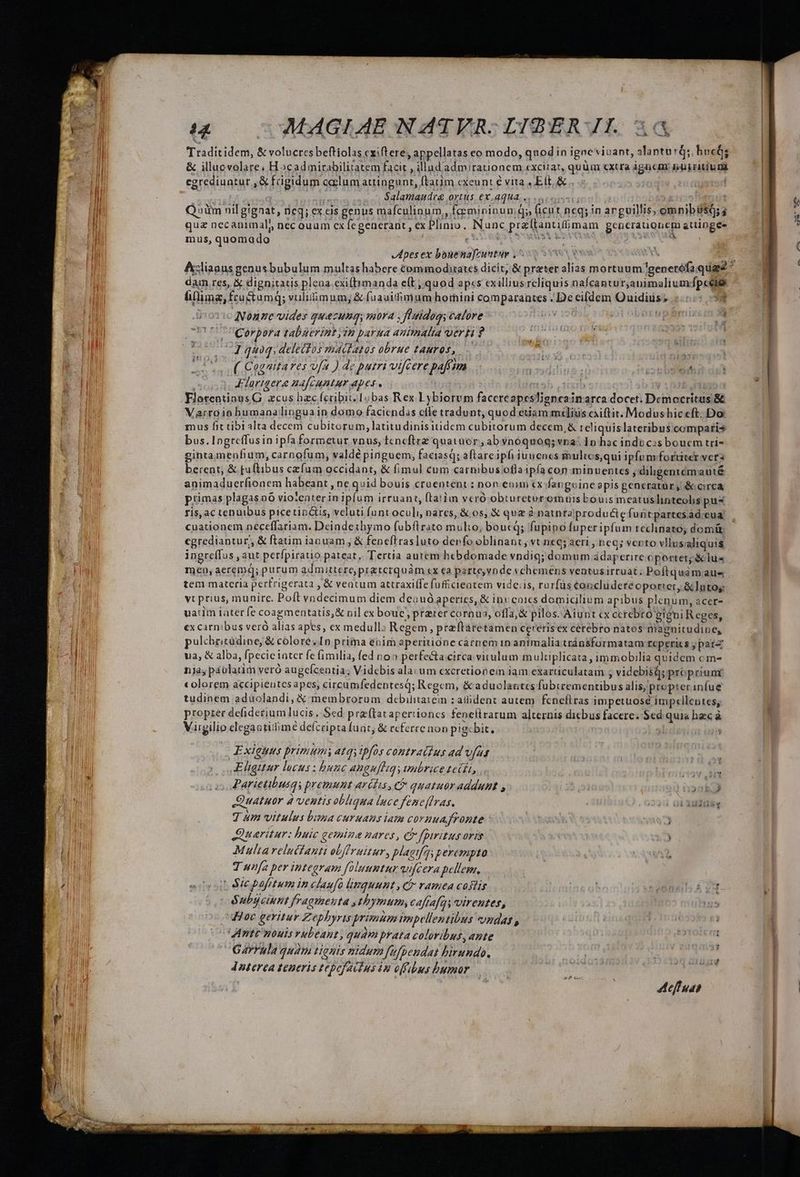 14 MAGIAE NATVR. LIBER II.
Traditidem, & volucres bestiolas existere, appellatas eo modo, quod in igne viuant, alantur q́;, hucq́;
& illuc volare. Hoc admirabilitatem facit, illud admirationem excitat, quùm extra ignem nutritium
egrediuntur, & frigidum cœlum attingunt, statim exeunt è vita. Est &
Salamandræ ortus ex aqua.
Quùm nil gignat, neq; ex eis genus masculinum, fœmininumq́;, sicut neq; in anguillis, omnibusq́;
quæ nec animal, nec ouum ex se generant, ex Plinio. Nunc præstantissimam generationem attinge-
mus, quomodo
Apes ex boue nascuntur.
Ælianus genus bubulum multas habere commoditates dicit, & præter alias mortuum generosa quæ-
dam res, & dignitatis plena existimanda est, quod apes ex illius reliquis nascantur, animalium specio
sissima, fructumq́; vtilissimum, & suauissimum homini comparantes. De eisdem Ouidius.
Nonne vides quæcunq; mora, fluidoq; calore
Corpora tabuerint, in parua animalia verti?
I quoq, delectos mactatos obrue tauros,
( Cognita res vsu ) de putri viscere passim
Florigeræ nascuntur apes.
Florentinus Græcus hæc scribit. Iubas Rex Lybiorum facere apes lignea in arca docet. Democritus &
Varro in humana lingua in domo faciendas esse tradunt, quod etiam melius existit. Modus hic est. Do-
mus fit tibi alta decem cubitorum, latitudinis itidem cubitorum decem, & reliquis lateribus comparis
bus. Ingressus in ipsa formetur vnus, fenestræ quatuor, ab vnoquoq; vna. In hac induces bouem tri-
ginta mensium, carnosum, valdè pinguem, faciasq́; astare ipsi iuuenes multos, qui ipsum fortiter ver-
berent, & fustibus cæsum occidant, & simul cum carnibus ossa ipsa comminuentes, diligentem autē
animaduersionem habeant, ne quid bouis cruentent: non enim ex sanguine apis generatur, & circa
primas plagas nō violenter in ipsum irruant, statim verò obturetur omnis bouis meatus linteolis pu-
ris, ac tenuibus pice tinctis, veluti sunt oculi, nares, & os, & quæ à natura productę sunt partes ad eua-
cuationem necessariam. Deinde thymo substrato multo, bouēq́; supino super ipsum reclinato, domū
egrediantur, & statim ianuam, & fenestras luto denso oblinant, vt neq; aeri, neq; vento vllus aliquis
ingressus, aut perspiratio pateat. Tertia autem hebdomade vndiq; domum adaperire oportet, & lu-
men, aeremq́; purum admittere, præterquàm ex ea parte, vnde vehemens ventus irruat. Postquàm au-
tem materia perfrigerata, & ventum attraxisse sufficientem videris, rursùs concludere oportet, & luto,
vt prius, munire. Post vndecimum diem denuò aperies, & inuenies domicilium apibus plenum, acer-
uatim inter se coagmentatis, & nil ex boue, præter cornua, ossa, & pilos. Aiunt ex cerebro gigni Reges,
ex carnibus verò alias apes, ex medulla Regem, præstare tamen ceteris ex cerebro natos magnitudine,
pulchritudine, & colore. In prima enim aperitione carnem in animalia trãsformatam reperies, par-
ua, & alba, specie inter se similia, sed non perfecta circa vitulum multiplicata, immobilia quidem om-
nia, paulatim verò augescentia. Videbis alarum excretionem iam exarticulatam, videbisq́; proprium
colorem accipientes apes, circumsedentesq́; Regem, & aduolantes subtrementibus alis, propter insue
tudinem aduolandi, & membrorum debilitatem: assident autem fenestras impetuosè impellentes,
propter desiderium lucis. Sed præstat apertiones fenestrarum alternis diebus facere. Sed quia hæc à
Virgilio elegantissimè descripta sunt, & referre non pigebit.
Exiguus primum, atq; ipsos contractus ad vsus
Eligitur locus: hunc angustiq; imbrice tecti,
Parietibusq; premunt arctis, & quatuor addunt,
Quatuor à ventis obliqua luce fenestras.
Tùm vitulus bima curuans iam cornua fronte
Quæritur: huic geminæ nares, & spiritus oris
Multa reluctanti obstruitur, plagisq; perempto
Tunsa per integram soluuntur viscera pellem.
Sic positum in clauso linquunt, & ramea costis
Subijciunt fragmenta, thymum, casiasq; virentes,
Hoc geritur Zephyris primùm impellentibus vndas,
Antè nouis rubeant, quàm prata coloribus, ante
Garrula quàm tignis nidum suspendat hirundo.
Interea teneris tepefactus in ossibus humor
Aestuat